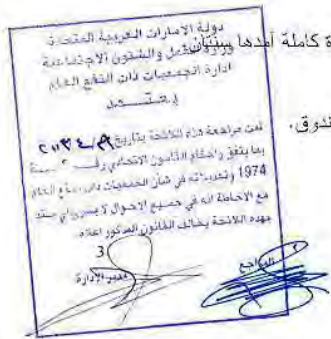 دولة الامارات العربية المتحدة
وزارة العمل والشئون الاجتماعية
ادارة الجمعيات ذات النفع العام
يعتمد
تمت مراجعة هذه اللائحة بتاريخ
بما يتفق واحكام القانون الاتحادي رقم لسنة
1974 وتعديلاته في شأن الجمعيات ذات النفع العام
مع الاحاطة انه في جميع الاحوال لا يسري اي بند
بهذه اللائحة يخالف القانون المذكور اعلاه.
3
المراجع
مدير الإدارة
ة كاملة أمدها سنتان
ندوق.